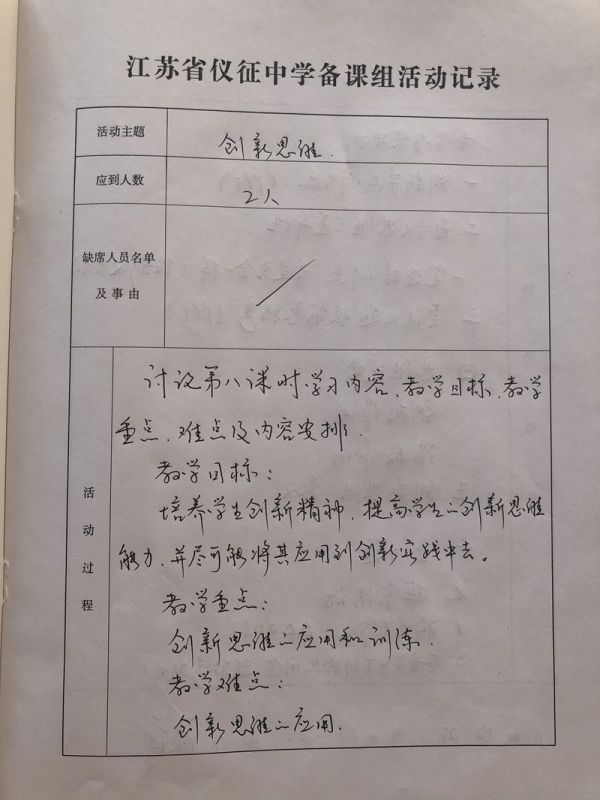 江苏省仪征中学备课组活动记录
活动主题
创新思维.
应到人数
2人
缺席人员名单
及事由
活动过程
讨议第八课时学习内容、教学目标、教学
重点、难点及内容安排.
教学目标:
培养学生创新精神,提高学生的创新思维
能力,并尽可能将其应用到创新实践中去。
教学重点:
创新思维的应用和训练.
教学难点:
创新思维的应用.